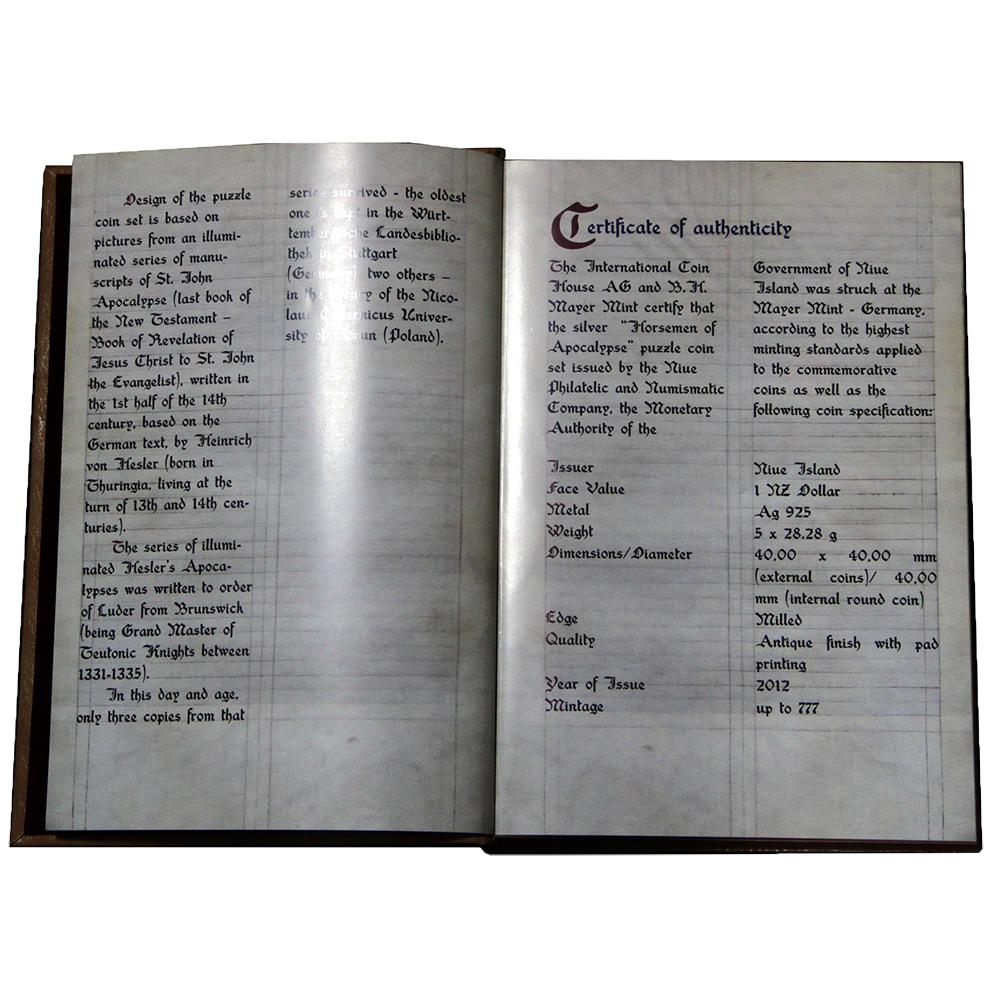 Design of the puzzle
coin set is based on
pictures from an illumi-
nated series of manu-
scripts of St. John
Apocalypse (last book of
the New Testament –
Book of Revelation of
Jesus Christ to St. John
the Evangelist), written in
the 1st half of the 14th
century, based on the
German text, by Heinrich
von Hesler (born in
Thuringia, living at the
turn of 13th and 14th cen-
turies).
The series of illumi-
nated Hesler's Apoca-
lypses was written to order
of Luder from Brunswick
(being Grand Master of
Teutonic Knights between
1331-1335).
In this day and age,
only three copies from that
series survived - the oldest
one is kept in the Würt-
tembergische Landesbiblio-
thek in Stuttgart
(Germany) two others –
in the library of the Nico-
laus Copernicus Univer-
sity of Torun (Poland).
Certificate of authenticity
The International Coin
House AG and B.H.
Mayer Mint certify that
the silver "Horsemen of
Apocalypse" puzzle coin
set issued by the Niue
Philatelic and Numismatic
Company, the Monetary
Authority of the
Government of Niue
Island was struck at the
Mayer Mint - Germany,
according to the highest
minting standards applied
to the commemorative
coins as well as the
following coin specification:
Issuer Niue Island
Face Value 1 NZ Dollar
Metal Ag 925
Weight 5 x 28.28 g
Dimensions/Diameter 40,00 x 40,00 mm
(external coins)/ 40,00
mm (internal round coin)
Edge Milled
Quality Antique finish with pad
printing
Year of Issue 2012
Mintage up to 777